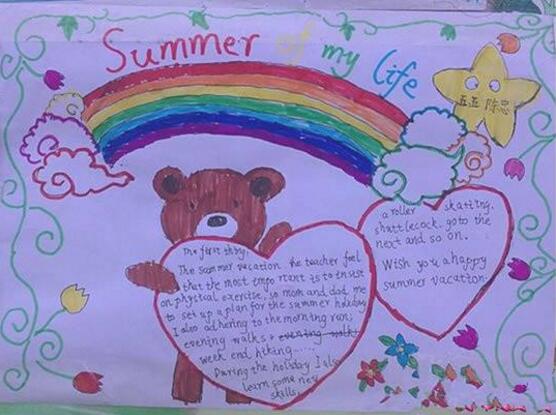 Summer of my life
五五 陈忠
The first thing,
The summer vacation the teacher feel
that the most important is to insist
on physical exercise, so mom and dad me
to set up a plan for the summer holiday
I also adhering to the morning run;
evening walks, evening walks
week end hiking......
During the holiday I also
learn some new
skills,
a roller skatting.
shuttlecock. go to the
next and so on.
Wish you a happy
summer vacation.